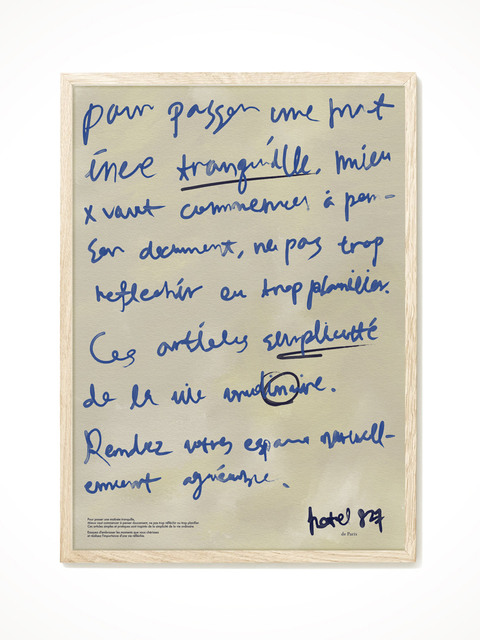 pour passer une mat
inée tranquille, mieu
x vaut commencer à pen-
ser doucement, ne pas trop
reflechir ou trop planifier.
Ces articles simplicité
de la vie ordinaire.
Rendez votres espace naturell-
ement agréable.
Pour passer une matinée tranquille,
Mieux vaut commencer à penser doucement, ne pas trop réfléchir ou trop planifier.
Ces articles simples et pratiques sont inspirés de la simplicité de la vie ordinaire.
les moments que vous
et réalisez l'importance d'une vie réfléchie.
hotel 827
de Paris